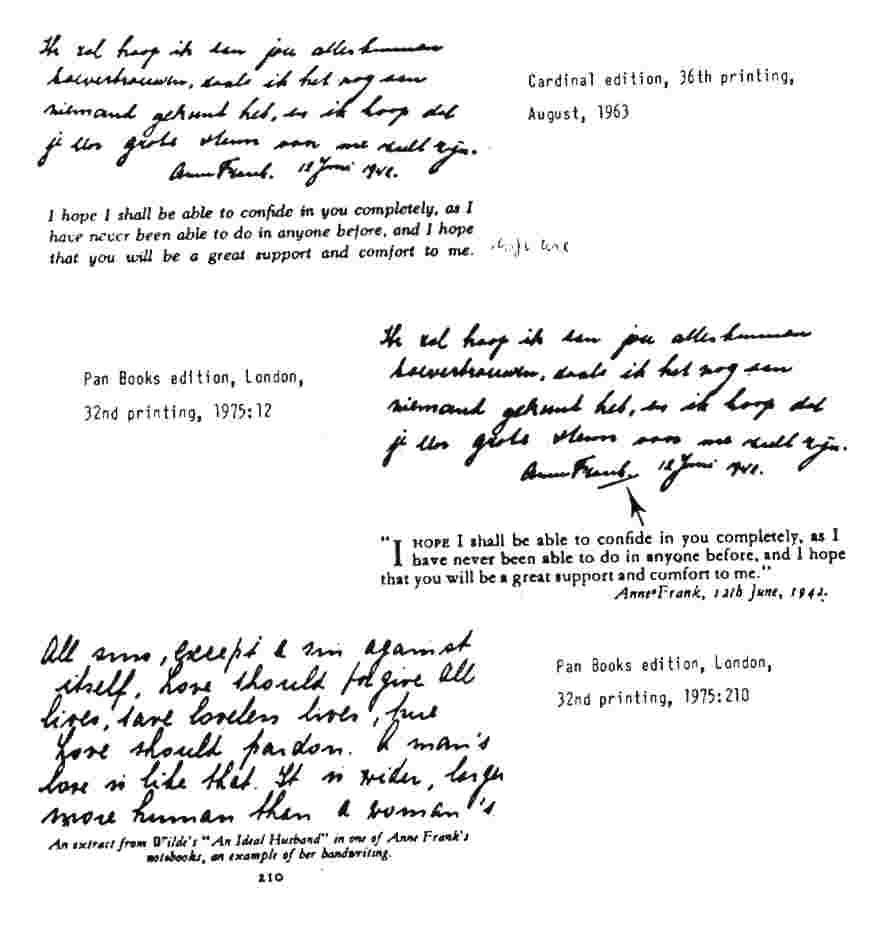 Ik zal hoop ik aan jou alles kunnen
toevertrouwen, zoals ik het nog aan
niemand gekund heb, en ik hoop dat
je een grote steun voor me zult zijn.
Anne Frank. 12 Juni 1942.
Cardinal edition, 36th printing,
August, 1963
I hope I shall be able to confide in you completely, as I
have never been able to do in anyone before, and I hope
that you will be a great support and comfort to me.
Pan Books edition, London,
32nd printing, 1975:12
Ik zal hoop ik aan jou alles kunnen
toevertrouwen, zoals ik het nog aan
niemand gekund heb, en ik hoop dat
je een grote steun voor me zult zijn.
Anne Frank. 12 Juni 1942.
"I HOPE I shall be able to confide in you completely, as I
have never been able to do in anyone before, and I hope
that you will be a great support and comfort to me."
Anne Frank, 12th June, 1942.
All sins, except a sin against
itself, Love should forgive All
lives, save loveless lives, true
Love should pardon. A man's
love is like that. It is wider, larger
more human than a woman's
Pan Books edition, London,
32nd printing, 1975:210
An extract from Wilde's "An Ideal Husband" in one of Anne Frank's
notebooks, an example of her handwriting.
210